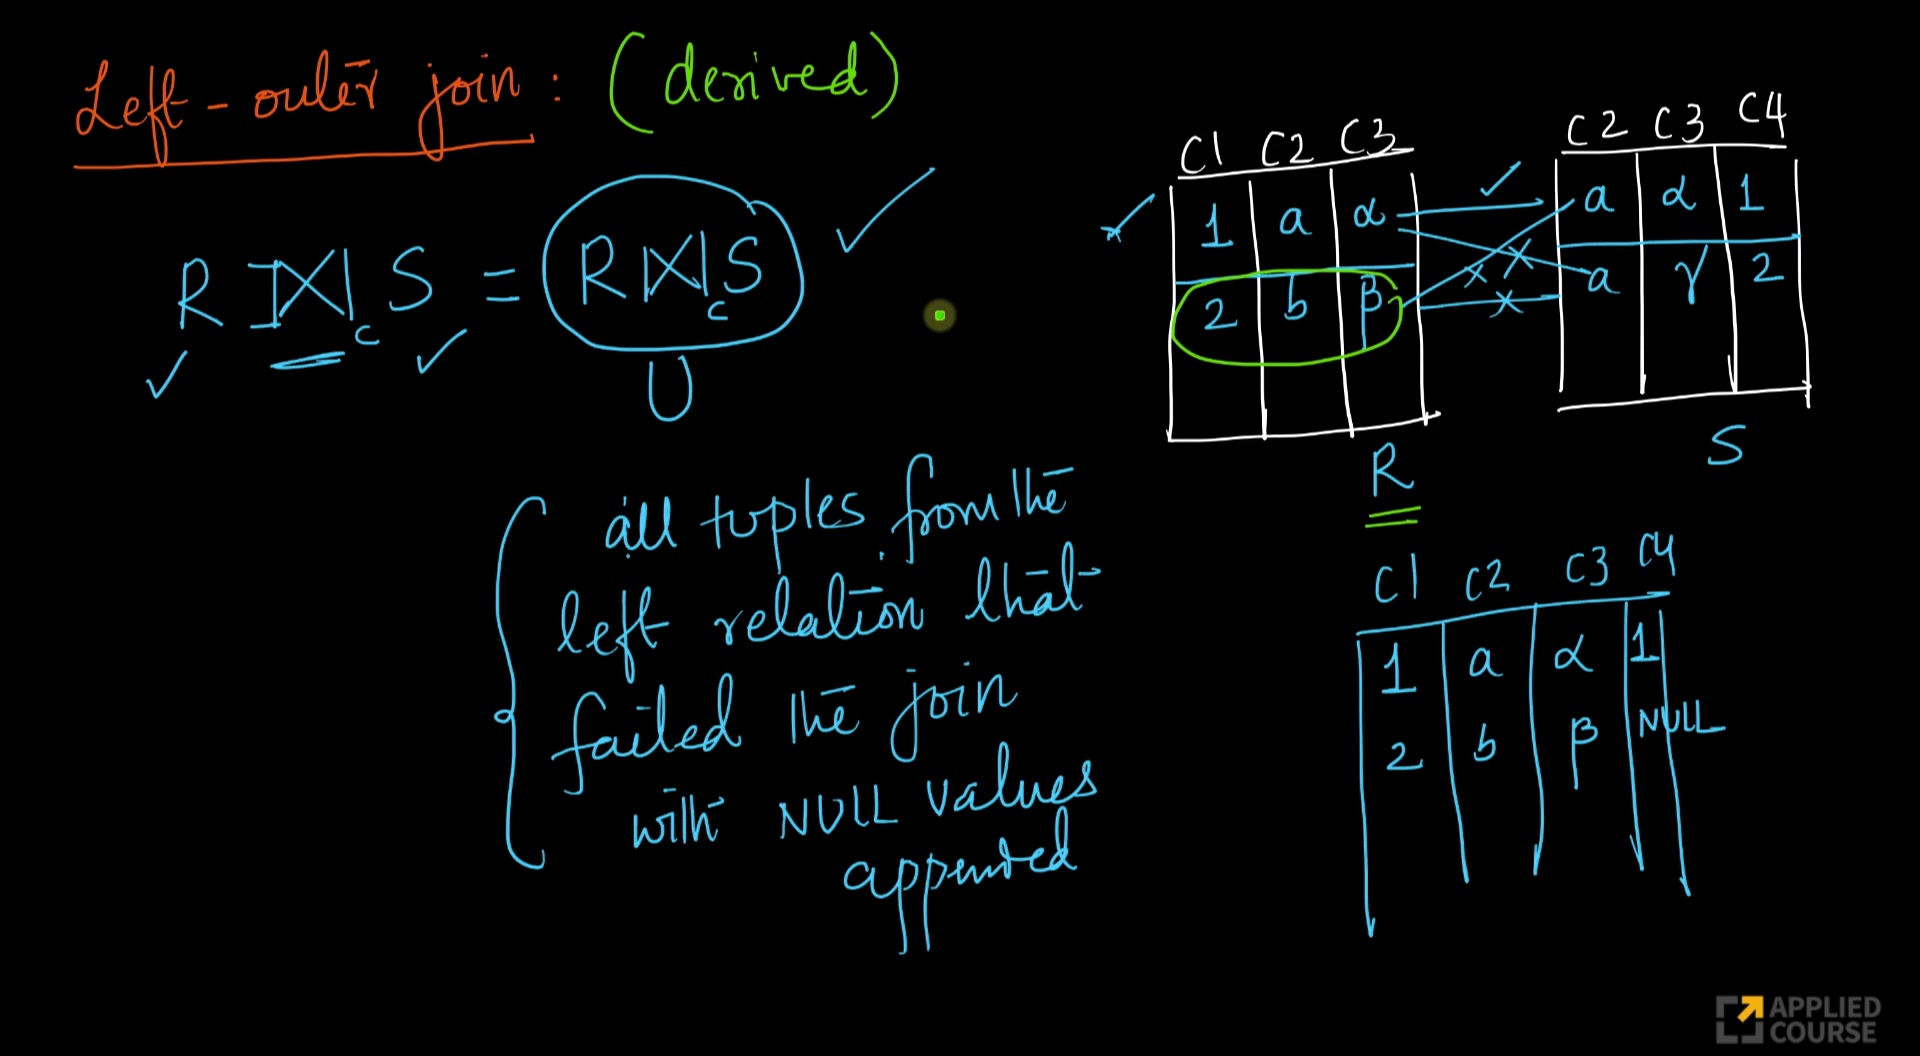 Left-outer join: (derived)
R ⟕c S = R ⋈c S
U
all tuples from the
left relation that
failed the join
with NULL values
appended
C1 C2 C3
1 a α
2 b β
R
C2 C3 C4
a α 1
a γ 2
S
C1 C2 C3 C4
1 a α 1
2 b β NULL
APPLIED
COURSE